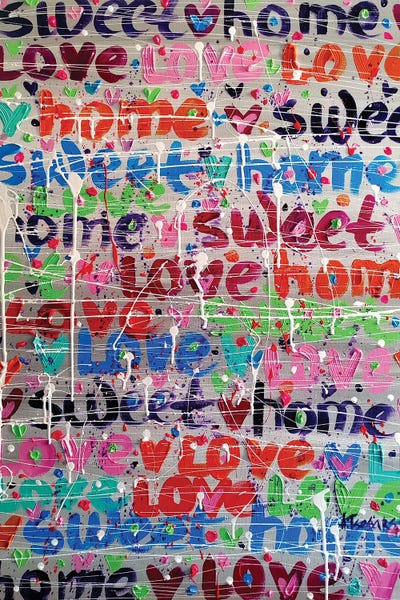 sweet ♥ home
Love Love Love
home ♥ sweet
sweet ♥ home
ome ♥ sweet
♥ Love hom
Love
Love Love
♥ sweet ♥ home
ove ♥ Love ♥
Love
sweet ho
home ♥ Love